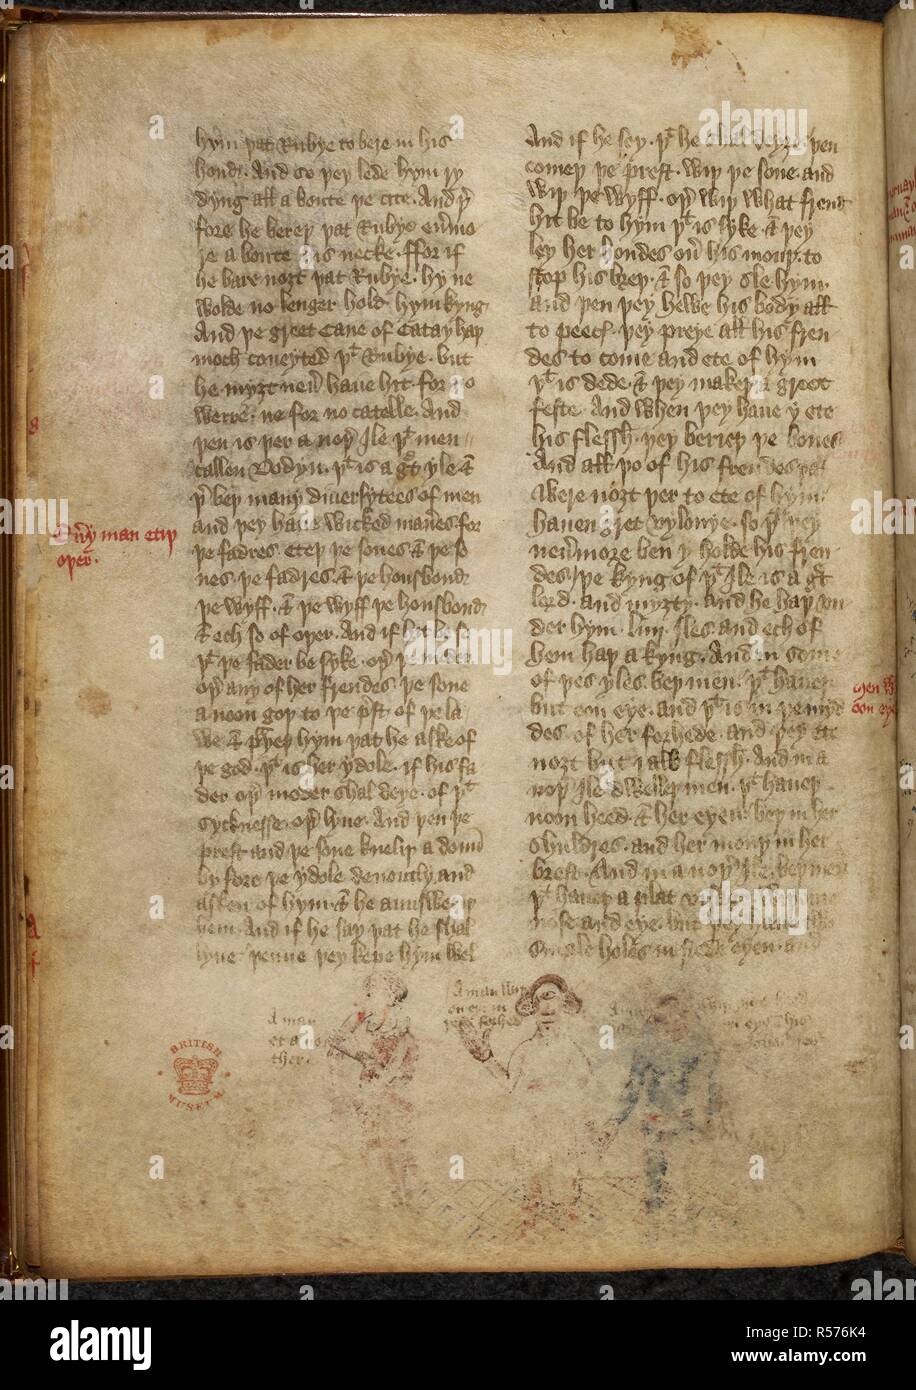 hym þat Rubye to bere in his
hond. And so þey lede hym ry
dyng all a boute þe cite. And þ̉
fore he bereþ þat Rubye eủmo
re a boute his necke. ffor if
he bare noȝt þat Rubye. hy ne
wolde no lenger hold hym kyng
And þe gret Cane of Catay haþ
moch coueyted þt Rubye. but
he myȝt neủ haue hit. for no
werre. ne for no catelle. And
þen is þer a noþ̉ Ile þt men
callen Dodyn. þt is a gt yle &
þ̉ beþ many diuersytees of men
and þey haue wicked man̉es for
þe fadres eteþ þe sones & þe so
nes þe fadres & þe housbond
þe wyff. & þe wyff þe housbond
& ech so of oþer. And if hit be so
þt þe fader be syke. oþ̉ þe moder
oþ̉ any of her frendes þe sone
a noon goþ to þe pst of þe la
we & prieþ hym þat he aske of
þe god. þt is her ydole. if his fa
der oþ̉ moder shal deye. of þt
sycknesse. oþ̉ lyue. And þen þe
prest and þe sone kneliþ a doun̉
by fore þe ydole deuoutly and
asken of hym. & he answeriþ
hem. And if he say þat he shal
lyue þenne þey kepe hym wel
And if he sey. þt he shal deye þen
comeþ þe prest. wiþ þe sone. and
wiþ þe wyff. oþ̉ wiþ what frend
hit be to hym þt is syke. & þey
ley her hondes oủ his mouþ. to
stop his breþ. & so þey sle hym.
and þen þey hewe his body all
to peces. þey preye all his fren
des to come and ete of hym
þt is dede. & þey makeþ a greet
feste. And when þey haue y ete
his flessh. þey berieþ þe bones
And all þo of his frendes þat
were noȝt þer to ete of hym.
hauen gret vylonye. so þt þey
neủmore ben y holde his fren
des / þe kyng of þt Ile is a gt
lord. and myȝty. and he haþ vn
der hym. liiij. Iles. and ech of
hem haþ a kyng. And in some
of þes yles. beþ men. þt haueþ
but oon eye. and þt is in þe myd
des of her forhede. and þey ete
noȝt but raw flessh. And in a
noþ̉ Ile dwelleþ men. þt haueþ
noon heed. & her eyen. beþ in her
shuldres. and her mouþ in her
brest. And in a noþ̉ Ile. beþ men
þt haueþ a plat
nose and eye. but þey haue two
smale holes in stede eyen. and
Eủy man etiþ
oþer.
men W
oon eye
A man
et a noo
ther.
A man Wiþ
oon eye in
þe forhed
BRITISH
MUSEUM
alamy
Image ID: R576K4
www.alamy.com